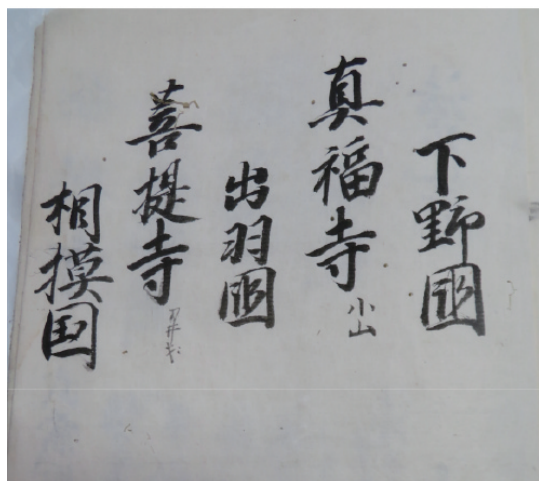 下野國
真福寺 小山
出羽國
菩提寺
相摸国